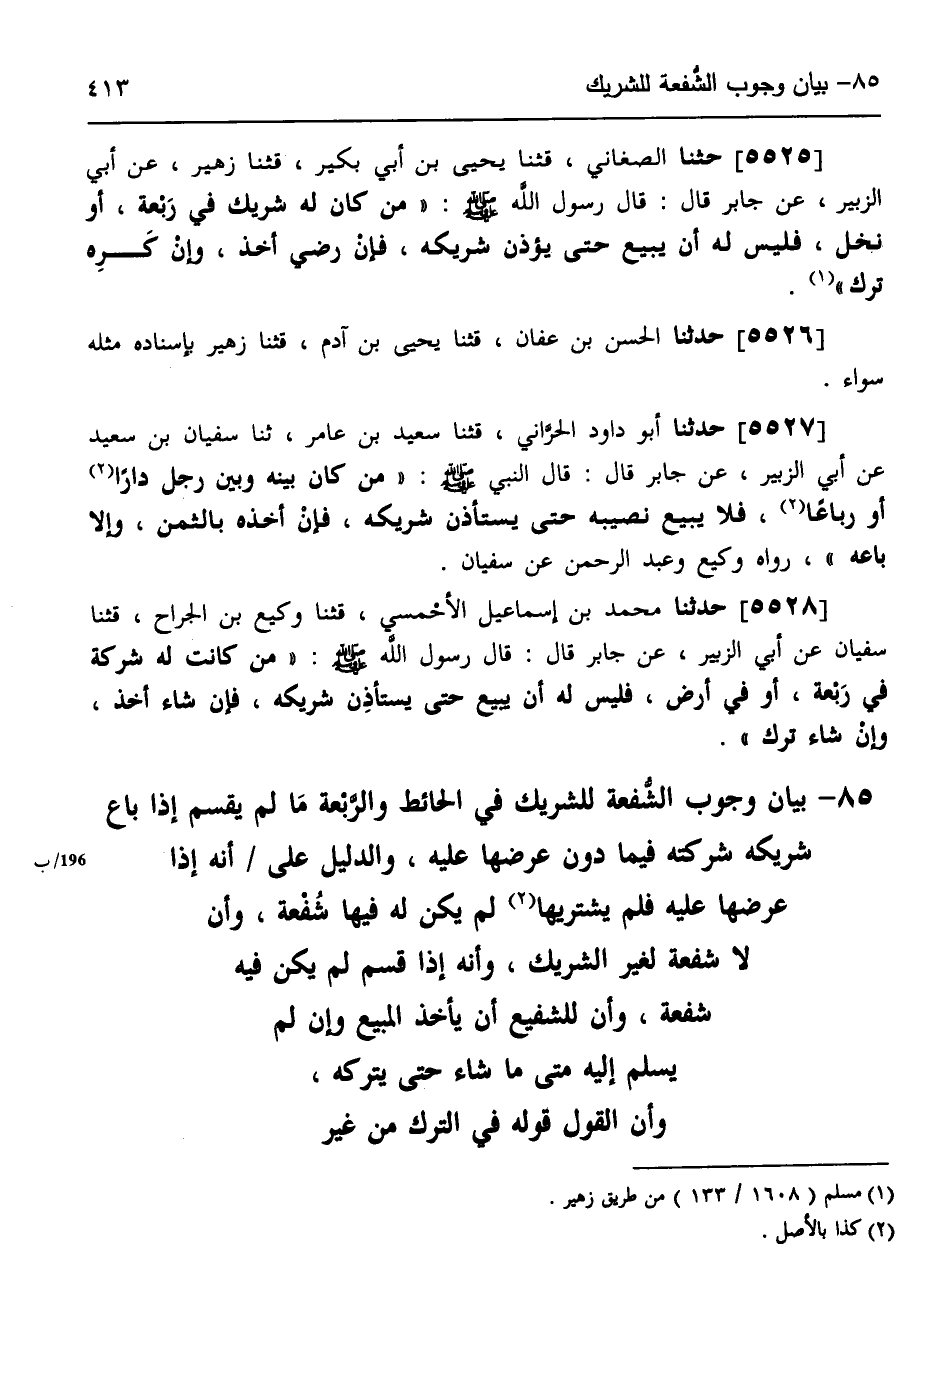 ٨٥- بيان وجوب الشُّفعة للشريك ٤١٣
[٥٥٢٥] حثنا الصغاني ، قثنا يحيى بن أبي بكير ، قثنا زهير ، عن أبي
الزبير ، عن جابر قال : قال رسول اللَّه ﷺ : « من كان له شريك في رَبْعة ، أو
نخل ، فليس له أن يبيع حتى يؤذن شريكه ، فإنْ رضي أخذ ، وإنْ كَـــرِه
ترك »(١) .
[٥٥٢٦] حدثنا الحسن بن عفان ، قثنا يحيى بن آدم ، قثنا زهير بإسناده مثله
سواء .
[٥٥٢٧] حدثنا أبو داود الحرَّاني ، قثنا سعيد بن عامر ، ثنا سفيان بن سعيد
عن أبي الزبير ، عن جابر قال : قال النبي ﷺ : « من كان بينه وبين رجل دارًا(٢)
أو رباعًا(٢) ، فلا يبيع نصيبه حتى يستأذن شريكه ، فإنْ أخذه بالثمن ، وإلا
باعه » ، رواه وكيع وعبد الرحمن عن سفيان .
[٥٥٢٨] حدثنا محمد بن إسماعيل الأحْمسي ، قثنا وكيع بن الجراح ، قثنا
سفيان عن أبي الزبير ، عن جابر قال : قال رسول اللَّه ﷺ : « من كانت له شركة
في رَبْعة ، أو في أرض ، فليس له أن يبيع حتى يستأذِن شريكه ، فإن شاء أخذ ،
وإنْ شاء ترك » .
٨٥- بيان وجوب الشُّفعة للشريك في الحائط والرَّبْعة مَا لم يقسم إذا باع
شريكه شركته فيما دون عرضها عليه ، والدليل على / أنه إذا 196/ب
عرضها عليه فلم يشتريها(٢) لم يكن له فيها شُفْعة ، وأن
لا شفعة لغير الشريك ، وأنه إذا قسم لم يكن فيه
شفعة ، وأن للشفيع أن يأخذ المبيع وإن لم
يسلم إليه متى ما شاء حتى يتركه ،
وأن القول قوله في الترك من غير
(١) مسلم ( ١٦٠٨ / ١٣٣ ) من طريق زهير .
(٢) كذا بالأصل .